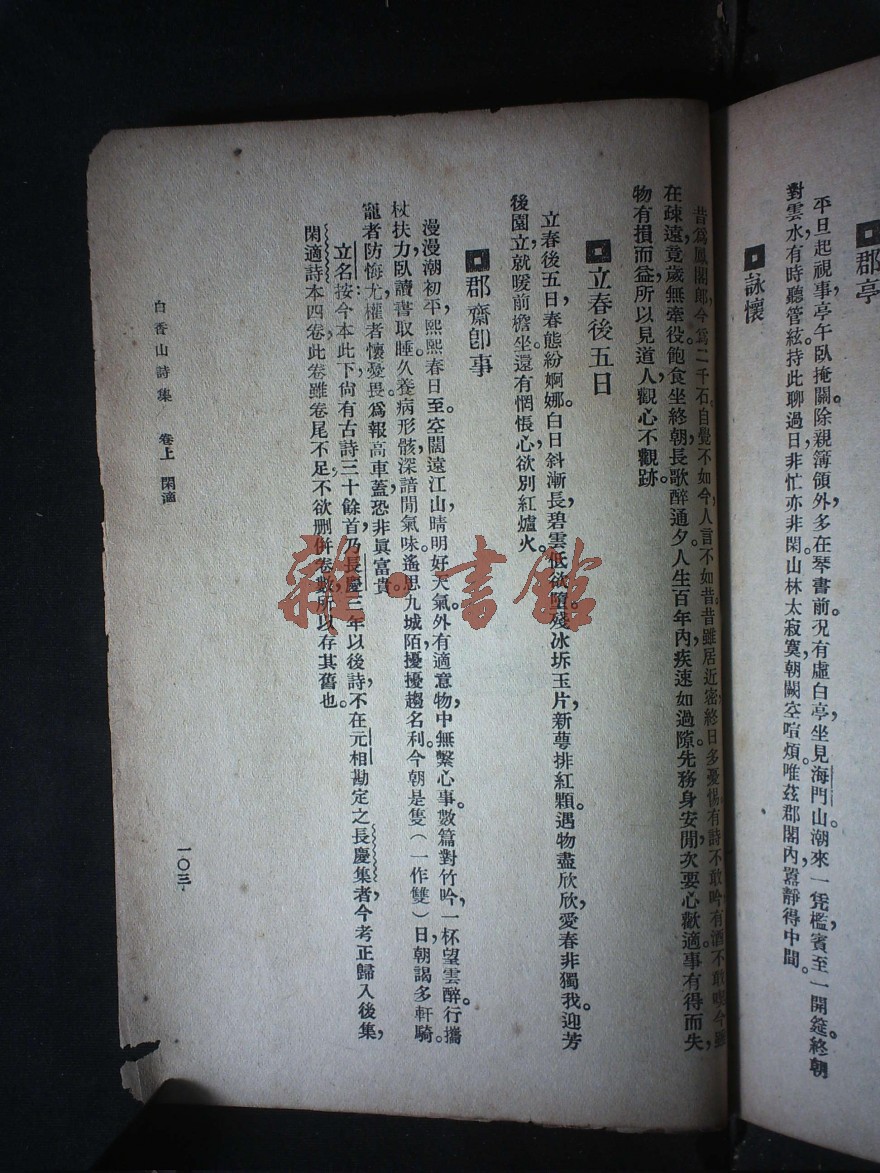 郡亭
平旦起視事，亭午臥掩關。除親簿領外，多在琴書前。況有虛白亭，坐見海門山。潮來一凭檻，賓至一開筵。終朝
對雲水，有時聽管絃。持此聊過日，非忙亦非閑。山林太寂寞，朝闕空喧煩。唯茲郡閣內，囂靜得中間。
詠懷
昔爲鳳閣郎，今爲二千石。自覺不如今，人言不如昔。昔雖居近密，終日多憂惕。有詩不敢吟，有酒不敢喫。今雖
在疎遠，竟歲無牽役。飽食坐終朝，長歌醉通夕。人生百年內，疾速如過隙。先務身安閒，次要心歡適。事有得而失，
物有損而益。所以見道人，觀心不觀跡。
立春後五日
立春後五日，春態紛婀娜。白日斜漸長，碧雲低欲墮。殘冰坼玉片，新萼排紅顆。遇物盡欣欣，愛春非獨我。迎芳
後園立，就暖前檐坐。還有惆悵心，欲別紅爐火。
郡齋卽事
漫漫潮初平，熙熙春日至。空闊遠江山，晴明好天氣。外有適意物，中無繫心事。數篇對竹吟，一杯望雲醉。行攜
杖扶力，臥讀書取睡。久養病形骸，深諳閒氣味。遙思九城陌，擾擾趨名利。今朝是隻（一作雙）日，朝謁多軒騎。
寵者防悔尤，權者懷憂畏。爲報高車蓋，恐非眞富貴。
立名按：今本此下尙有古詩三十餘首，乃長慶三年以後詩，不在元相勘定之長慶集者，今考正歸入後集，
閑適詩本四卷，此卷雖卷尾不足，不欲刪併卷數，所以存其舊也。
白香山詩集 卷上 閑適
一〇三
雜·書館